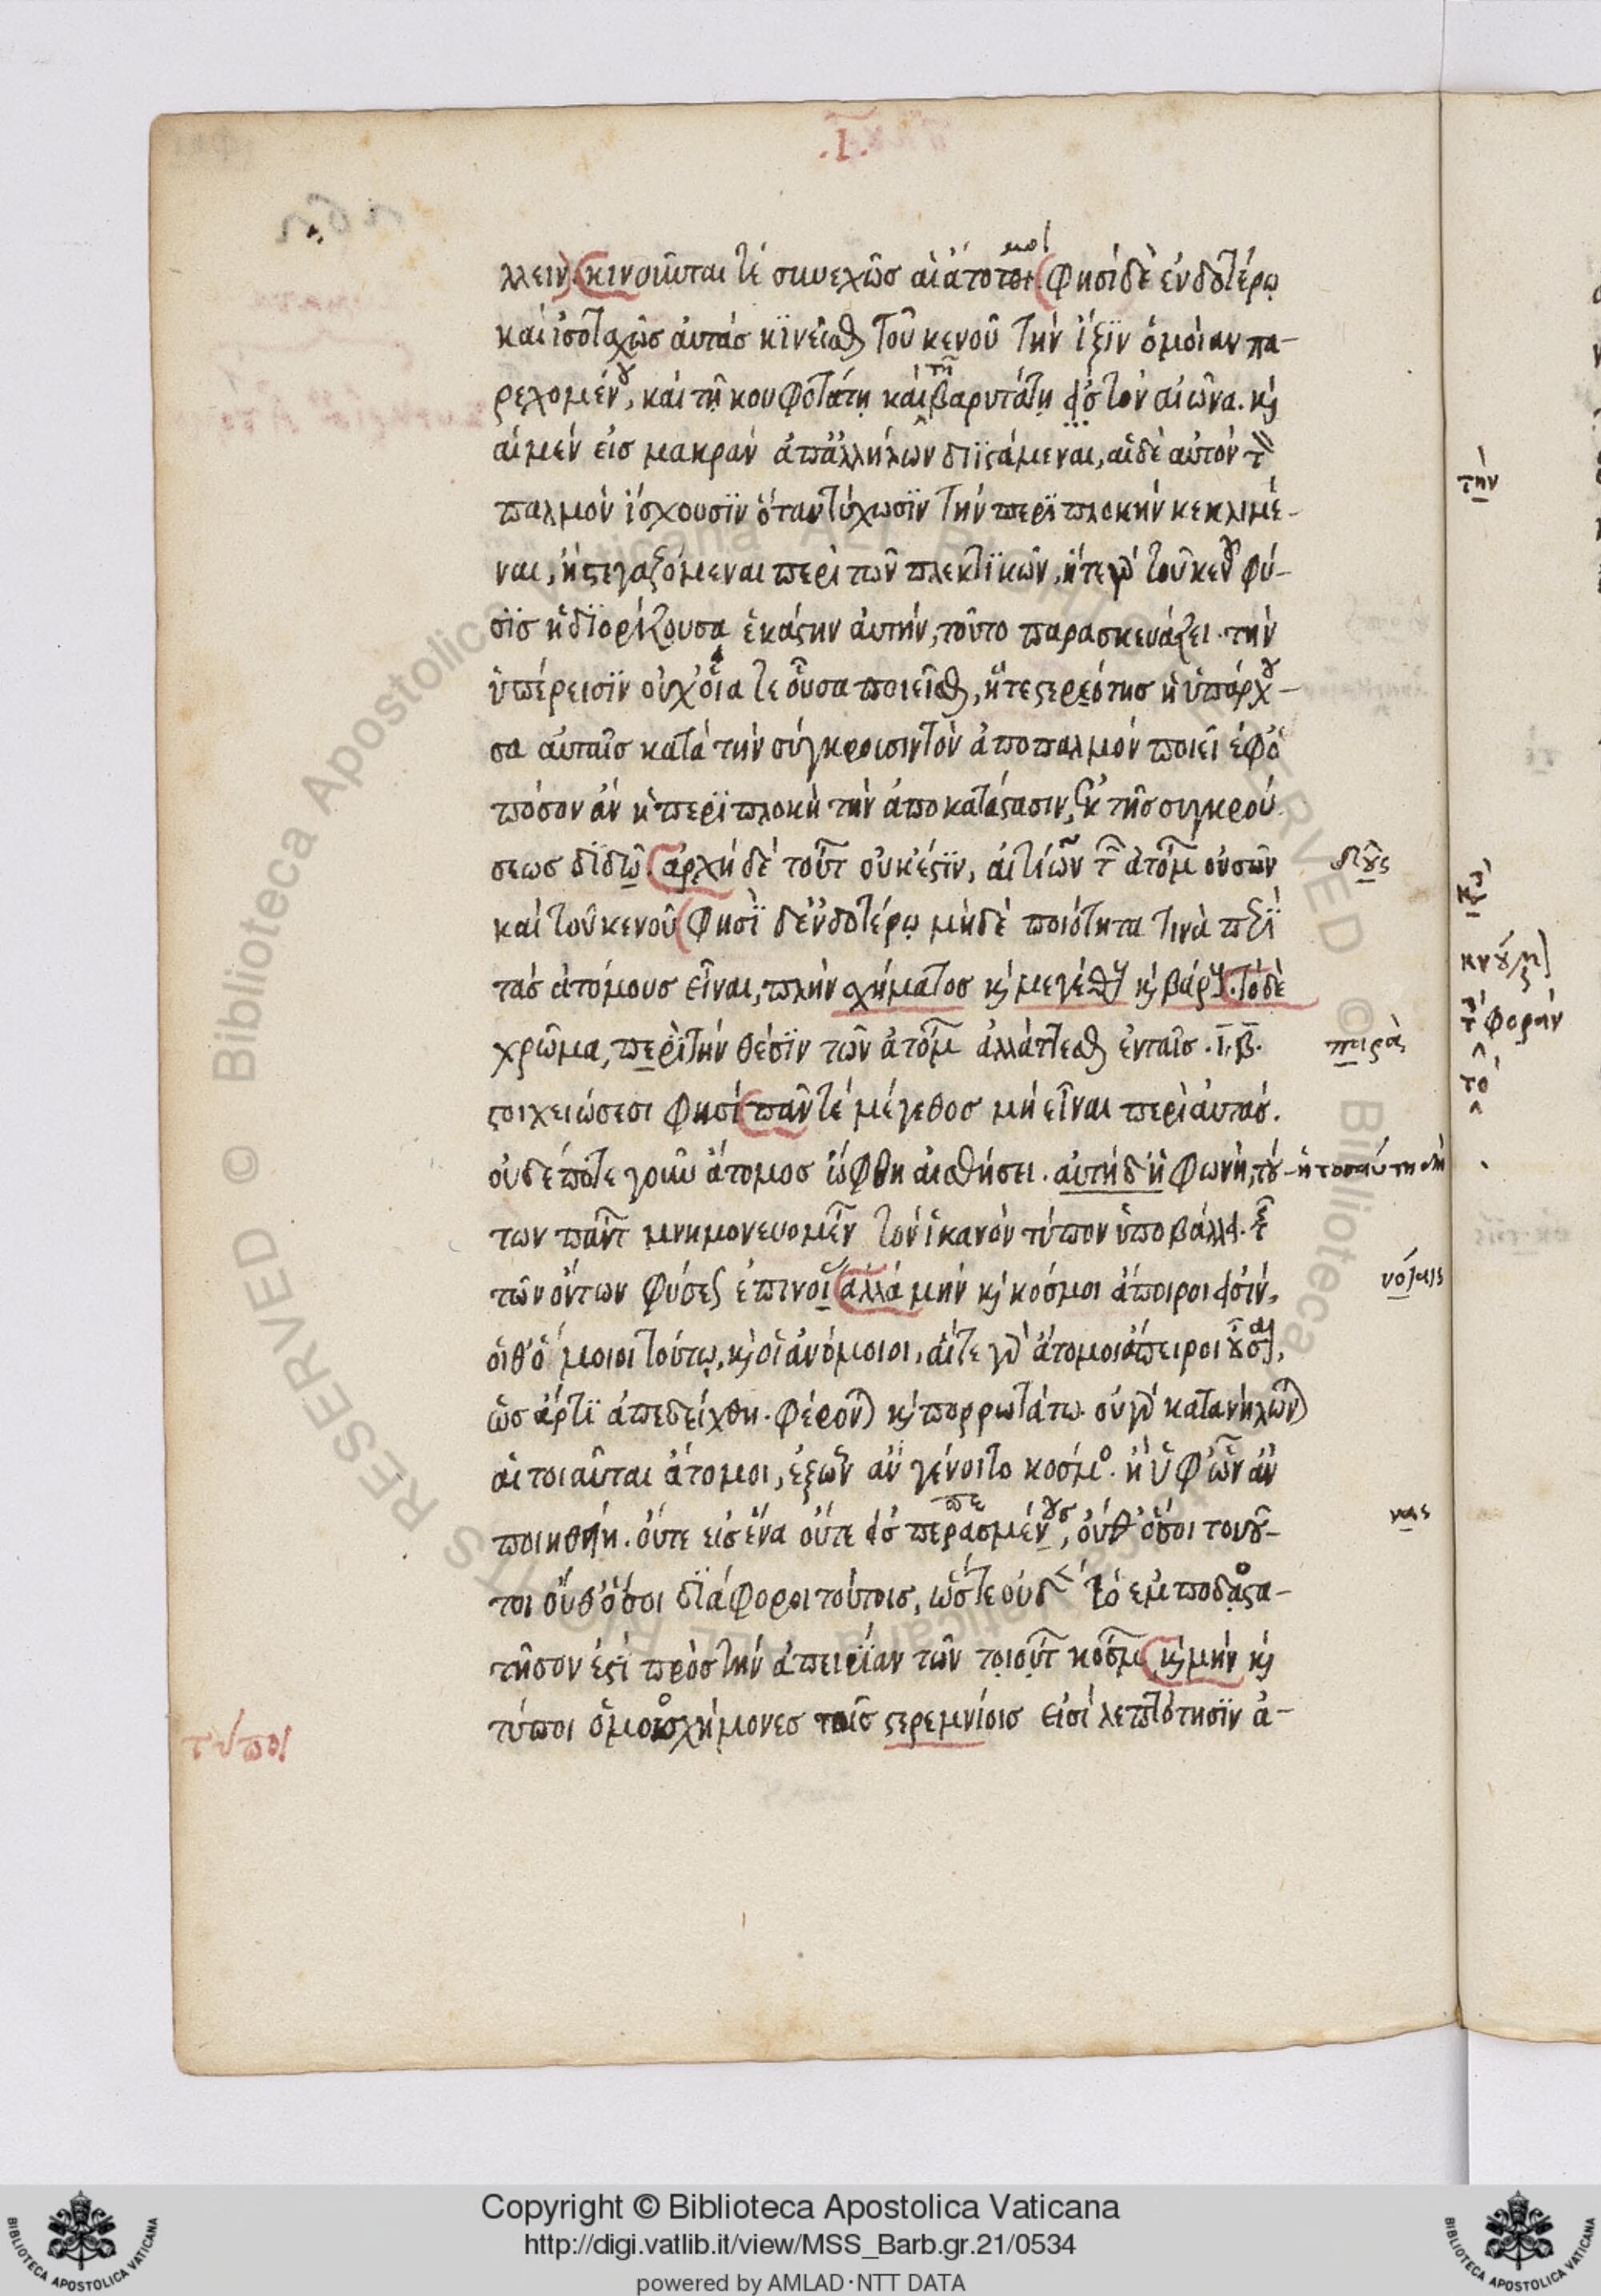 .Ι.
λλειν). κινοῦνται τέ συνεχῶσ αἱ ἄτοτοι. (φησί δὲ ἐνδοτέρω
μοι
καὶ ἰσοταχῶσ αυτάσ κϊνεῖσθαι τοῦ κενοῦ τὴν ἴξϊν ὁμοίαν πα-
ρεχομένου, καὶ τῆ κουφοτάτη καὶ τῆ βαρυτάτη εἰσ τὸν αἰῶνα. καὶ
αἱ μέν εισ μακράν ἀπ ἀλλήλων διϊστάμεναι, αἱ δὲ αὐτόν τ
παλμόν ἴσχουσϊν ὅταν τύχωσϊν τὴν περϊπλοκήν κεκλιμέ-
ναι, ἢ στεγαζόμεναι περὶ τῶν πλεκτϊκῶν, ἥτε γὰρ τοῦ κενοῦ φύ-
σϊσ ἡ δϊορίζουσα ἑκάστην ἀυτήν, τοῦτο παρασκευάζει. τὴν
ὑπέρεισϊν οὐχ οἷα τε οὖσα ποιεῖσθαι, ἥτε στερεότησ ἡ ὑπάρχου-
σα αὐταῖσ κατὰ τὴν σύγκρουσιν τὸν ἀποπαλμόν ποιεῖ ἐφ ὁ
πόσον ἄν ἡ περϊπλοκή τὴν ἀποκατάστασιν, ἐκ τῆσ συγκρού
σεωσ δϊδῶ. ἀρχή δὲ τούτ οὐκ ἔστϊν, αἰτίων τ ἀτόμ ουσῶν
καὶ τοῦ κενοῦ (φησϊ δ' ἐνδοτέρω μηδὲ ποιότητα τινὰ περϊ
τάσ ἀτόμουσ εἶναι, πλήν σχήματοσ καὶ μεγέθουσ καὶ βάρουσ. τὸ δὲ
χρῶμα, περὶ τὴν θέσϊν τῶν ἀτόμ ἀλλάττεσθαι ἐν ταῖσ .ι.β.
στοιχειώσεσι φησί παν τέ μέγεθοσ μή εἶναι περὶ αυτάσ.
οὐδέποτε γοῦν ἄτομοσ ὤφθη αισθήσει. αυτὴ δ ἡ φωνή, τού-
των πάντ μνημονευομέν τὸν ἱκανόν τύπον ὑποβάλλει. τ
τῶν ὄντων φύσεσ ἐπινοί ἀλλά μὴν καὶ κόσμοι ἄπειροι εἰσίν,
οἵθ' ὅμοιοι τούτω, καὶ οἱ ἀνόμοιοι, αἵτε γὰρ ἄτομοι ἄπειροι οὖσαι,
ὡσ ἄρτϊ ἀπεδείχθη. φέρον) καὶ πορρωτάτω. οὐ γὰρ κατανήλων)
αἱ τοιαῦται ἄτομοι, ἐξ ὧν αν γένοιτο κοσμο. ἢ ὑφ' ὧν ἄν
ποιηθῆη. οὔτε εἰσ ἕνα οὔτε εἰσ περασμένουσ, οὔθ' ὅσοι τοιοῦ-
πε
τοι οὔθ' ὅσοι δϊάφοροι τούτοισ, ὥστε οὐδε τὸ ἐμποδοστα-
τῆσον ἐστϊ πρὸσ τὴν ἀπειρϊαν τῶν τοιούτ κόσμ καὶ μήν καὶ
τύποι ὁμοιοσχήμονεσ τοῖσ στερεμνίοισ εἰσὶ λεπτότησϊν ἀ-
δίουσ
παρὰ
ἡ τοσαύτη δὴ
νοίαισ
νασ
τύποι
τὴν
τ φοράν
τὸ
Copyright © Biblioteca Apostolica Vaticana
http://digi.vatlib.it/view/MSS_Barb.gr.21/0534
powered by AMLAD·NTT DATA